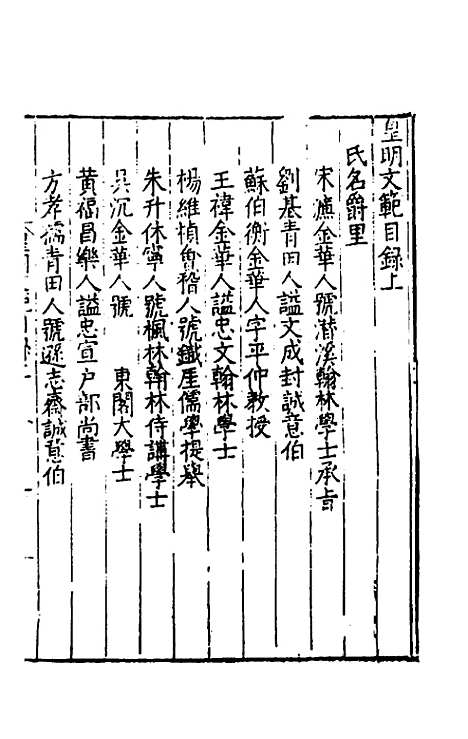 皇明文範目錄上
氏名爵里
宋濂金華人號潛溪翰林學士承旨
劉基青田人謚文成封誠意伯
蘇伯衡金華人字平仲教授
王禕金華人謚忠文翰林學士
楊維楨會稽人號鐵厓儒學提舉
朱升休寧人號楓林翰林侍講學士
吳沉金華人號　　東閣大學士
黃福昌樂人謚忠宣戶部尚書
方孝孺青田人號遜志齋誠意伯